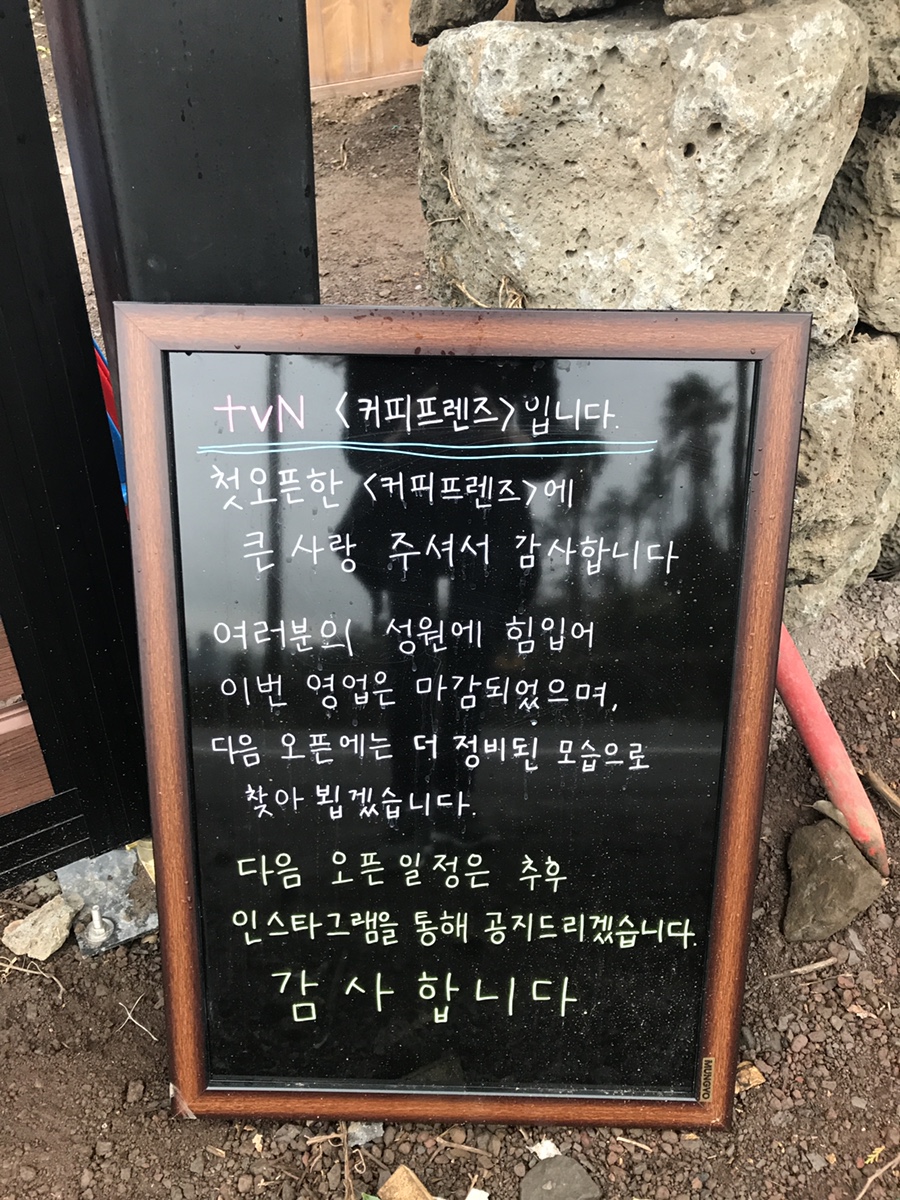 tvN <커피프렌즈>입니다.
첫오픈한 <커피프렌즈>에
큰 사랑 주셔서 감사합니다
여러분의 성원에 힘입어
이번 영업은 마감되었으며,
다음 오픈에는 더 정비된 모습으로
찾아 뵙겠습니다.
다음 오픈 일정은 추후
인스타그램을 통해 공지드리겠습니다.
감사합니다.
MUNGYO